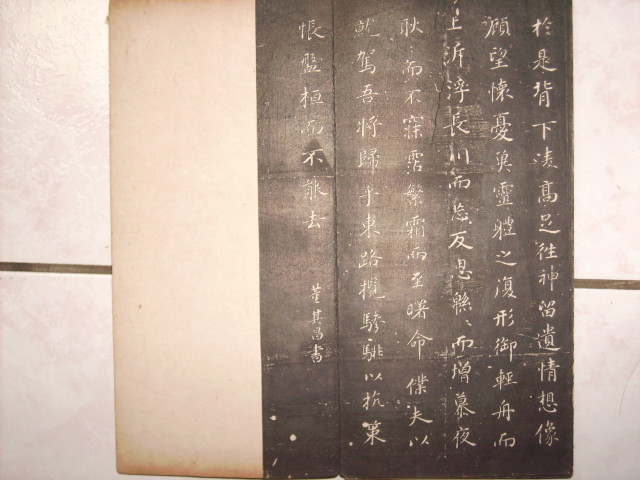 於是背下陵高足往神留遺情想像
顧望懷憂冀靈體之復形御輕舟而
上泝浮長川而忘反思緜〻而增慕夜
耿〻而不寐霑繁霜而至曙命僕夫以
就駕吾將歸乎東路攬騑轡以抗策
悵盤桓而不能去
董其昌書